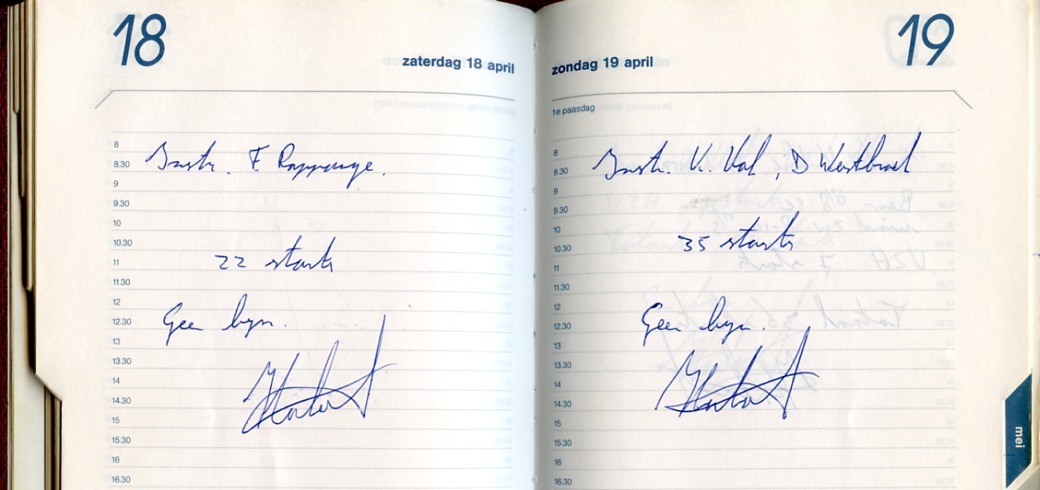 18
zaterdag 18 april
8
8.30 Instr. F Rappange.
9
9.30
10
10.30
11 22 starts
11.30
12
12.30 Geen byz.
13
13.30
14
14.30
15
15.30
16
16.30
19
zondag 19 april
1e paasdag
8
8.30 Instr. K. Vol, D Westbroek
9
9.30
10
10.30 35 starts
11
11.30
12
12.30 Geen byz.
13
13.30
14
14.30
15
15.30
16
16.30
mei